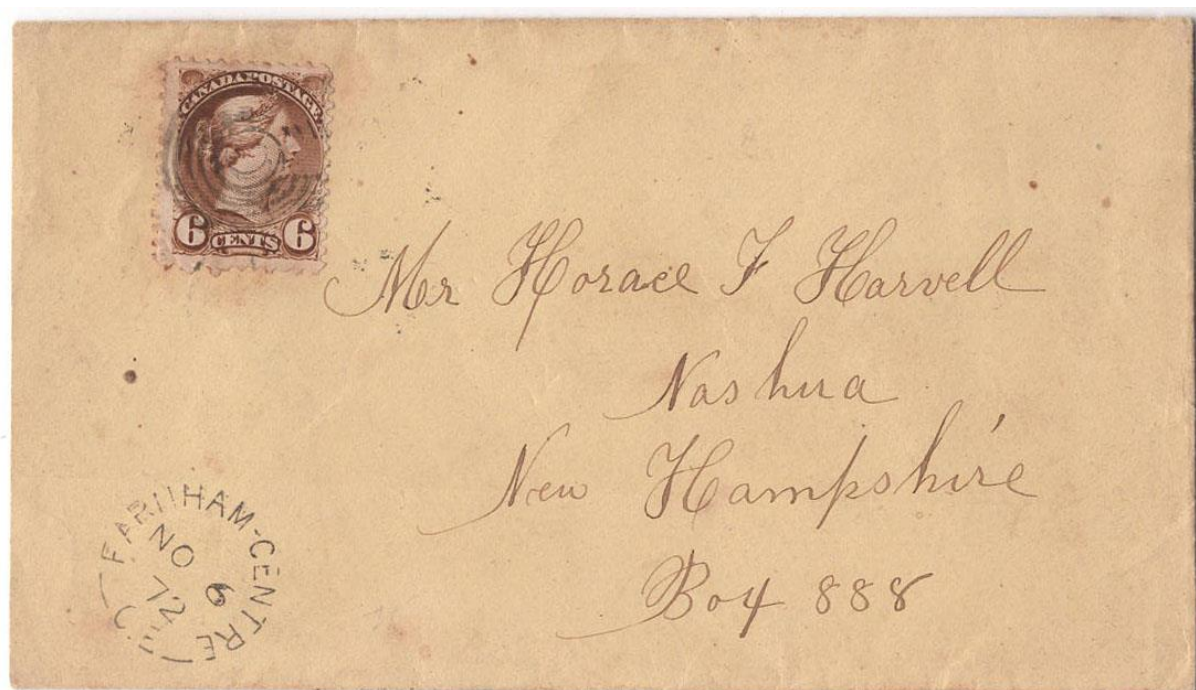 CANADA POSTAGE
6 CENTS 6
Mr Horace F Harvell
Nashua
New Hampshire
Box 888
FARNHAM-CENTRE
NO 6
72